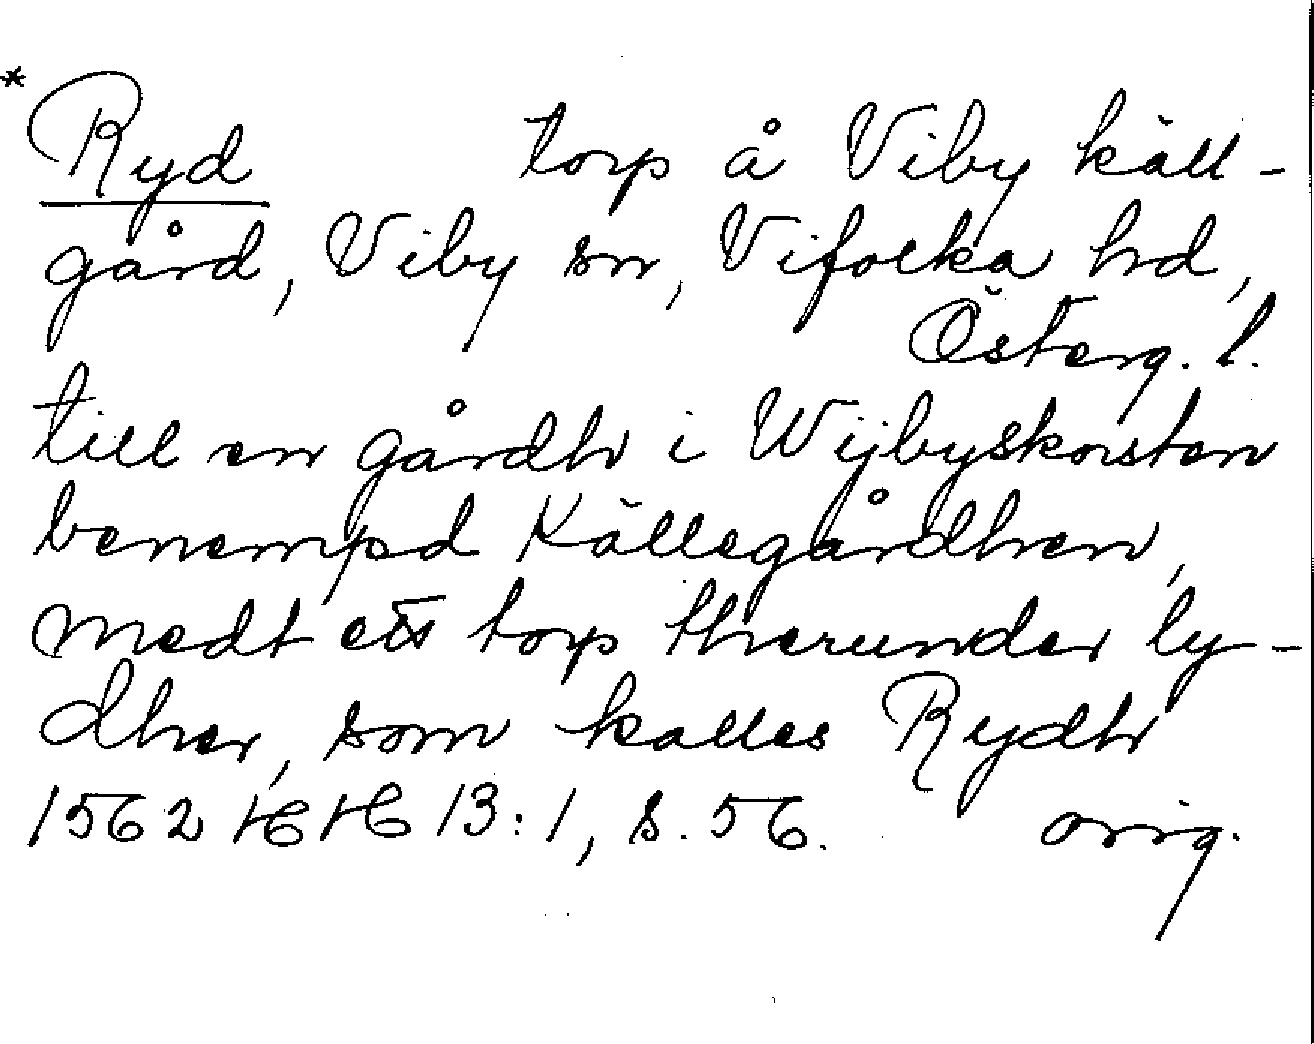 * Ryd torp å Viby käll-
gård, Viby sn, Vifolka hd,
Österg. l.
till en gårdh i Wijbyskorsten
benempd Källegårdhen,
medt ett torp therunder ly-
dher, som kalles Rydh
1562 HH 13:1, s. 56. orig.